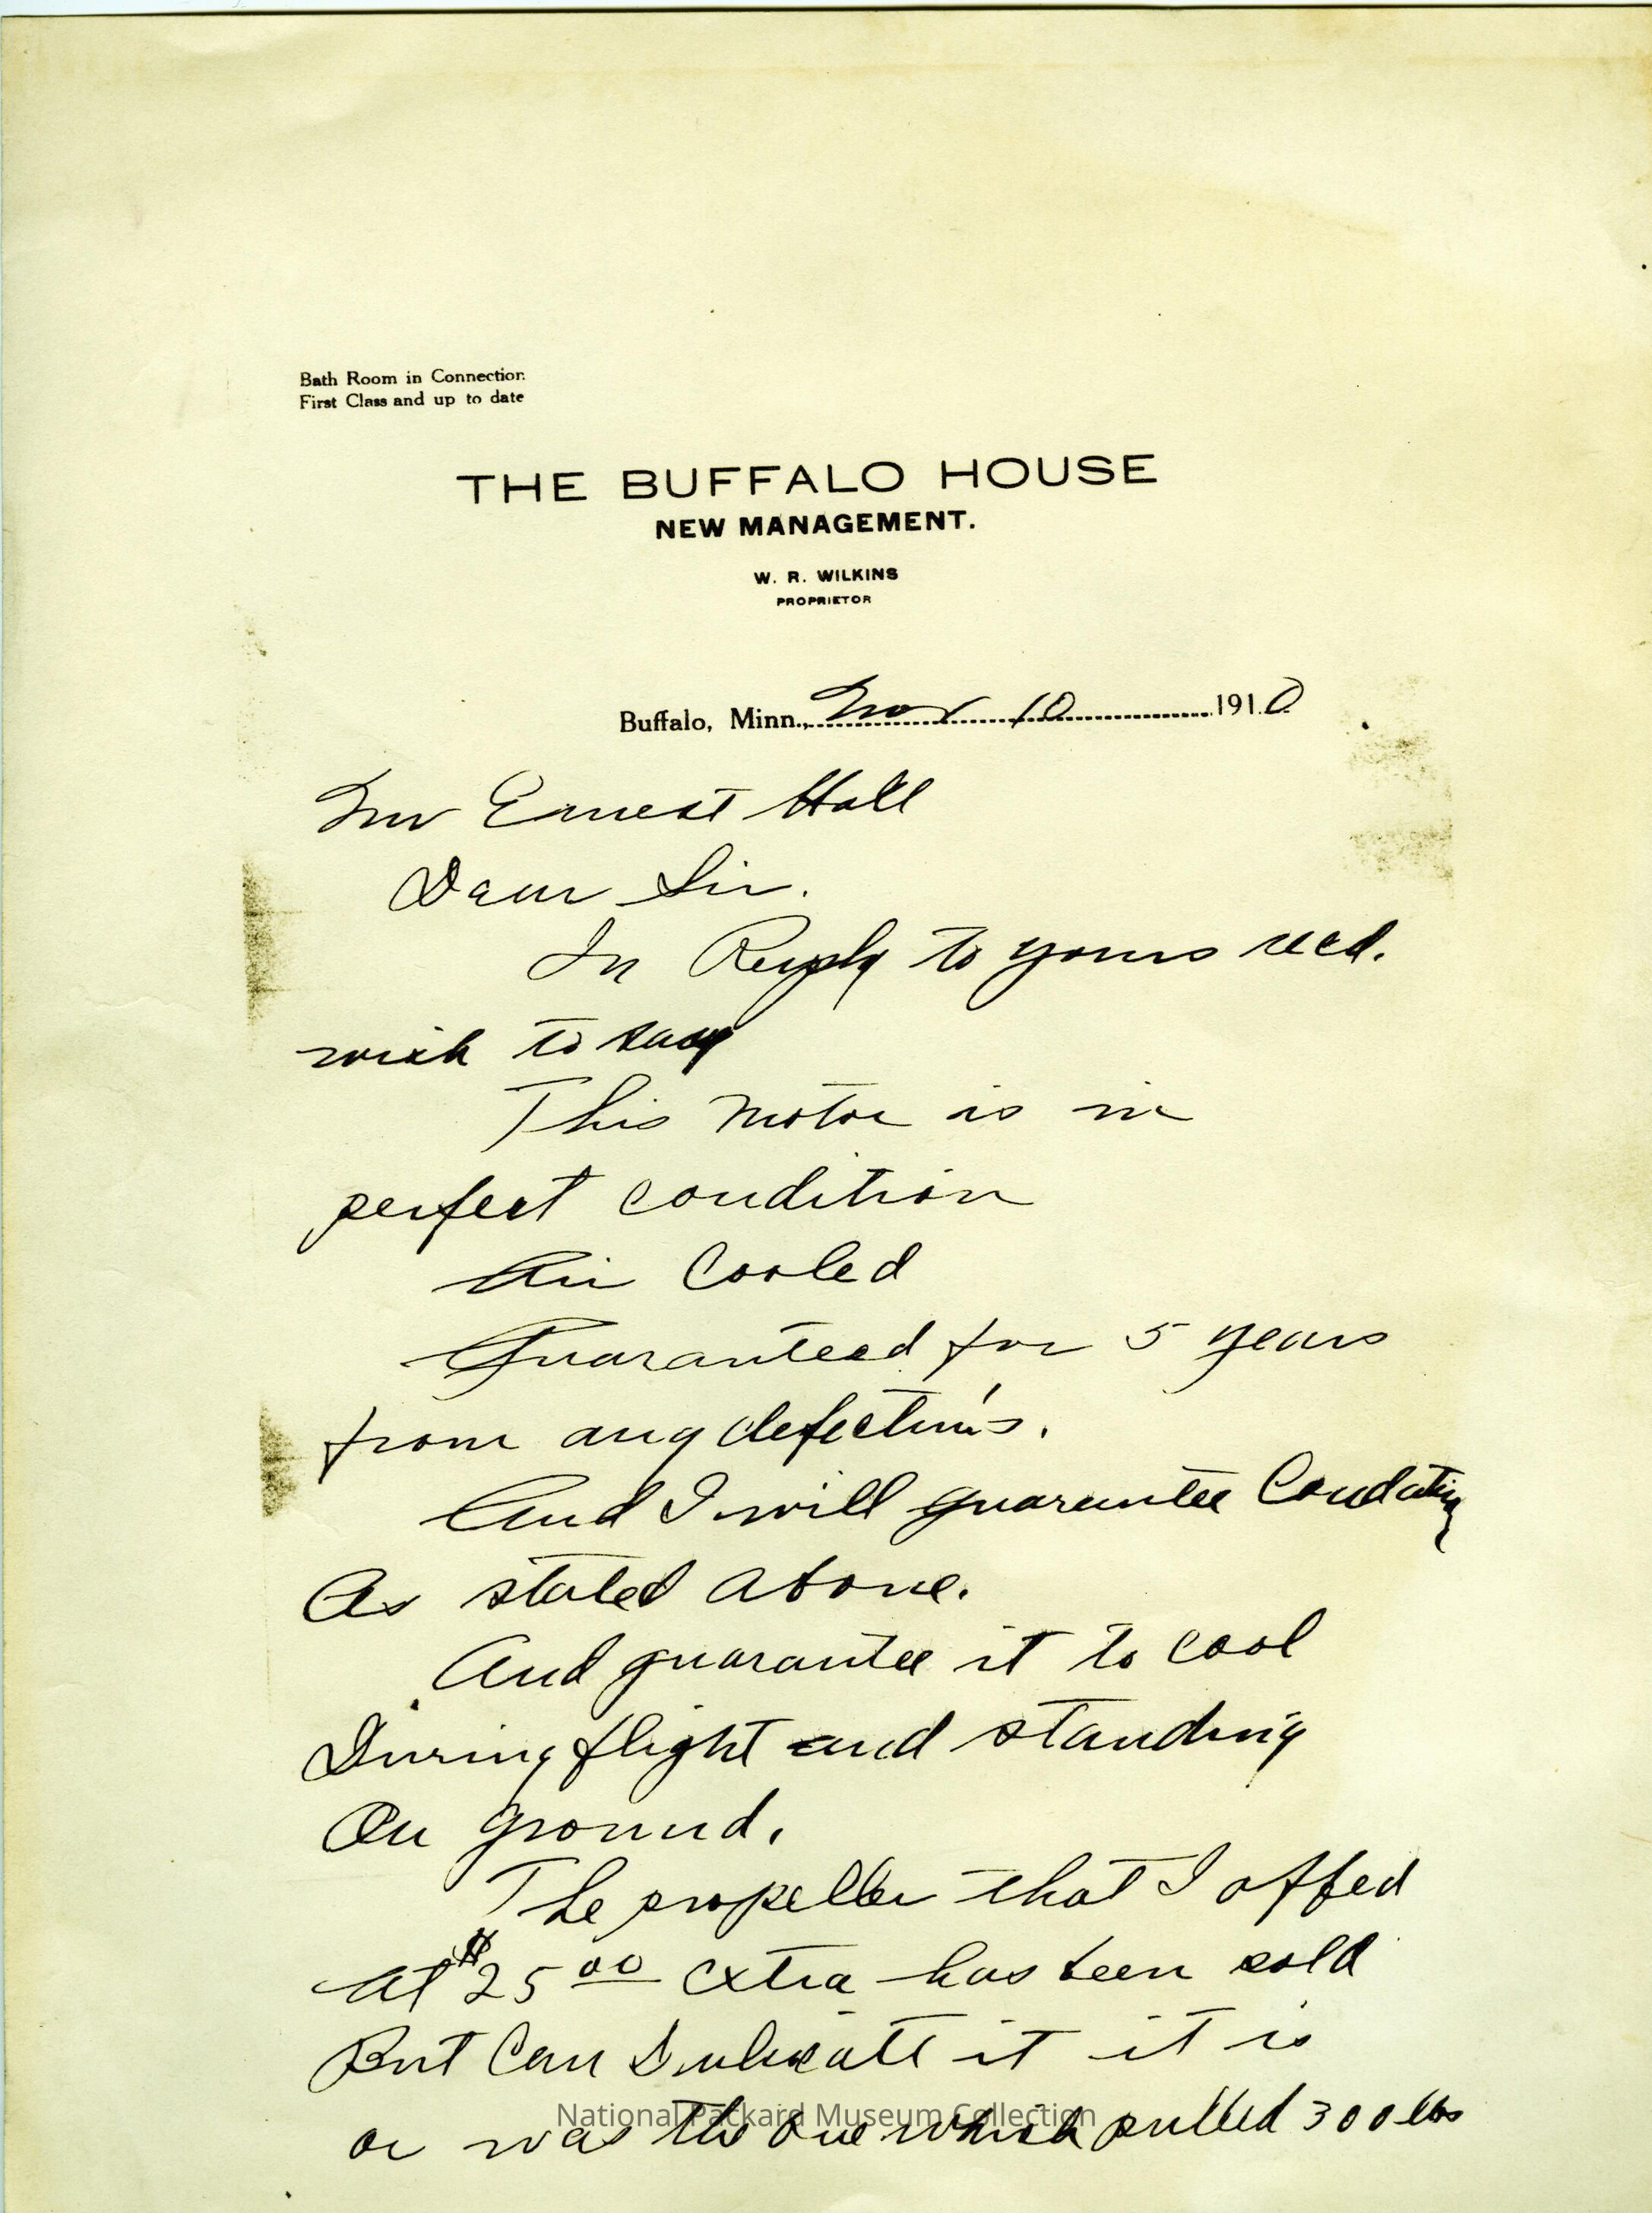 Bath Room in Connection
First Class and up to date
THE BUFFALO HOUSE
NEW MANAGEMENT.
W. R. WILKINS
PROPRIETOR
Buffalo, Minn., Nov 10 1910
Mr Ernest Hall
Dear Sir.
In Reply to yours recd.
wish to say
This motor is in
perfect condition
Air Cooled
Guaranteed for 5 years
from any
And I will guarantee
As stated above.
And guarantee it to cool
During flight and standing
On ground.
The propeller that I offed
At $25 00 extra has been sold
But Can it it is
or was the one which pulled 300 lbs
National Packard Museum Collection